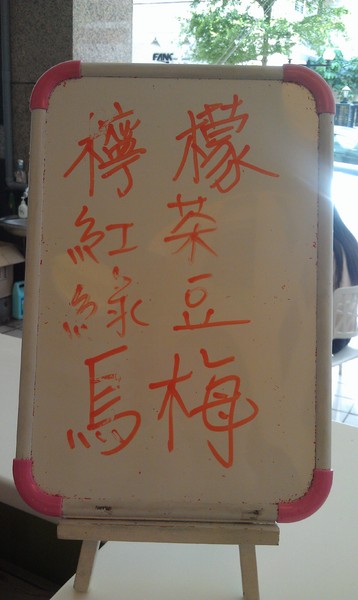 檸檬
紅茶
綠豆
烏梅